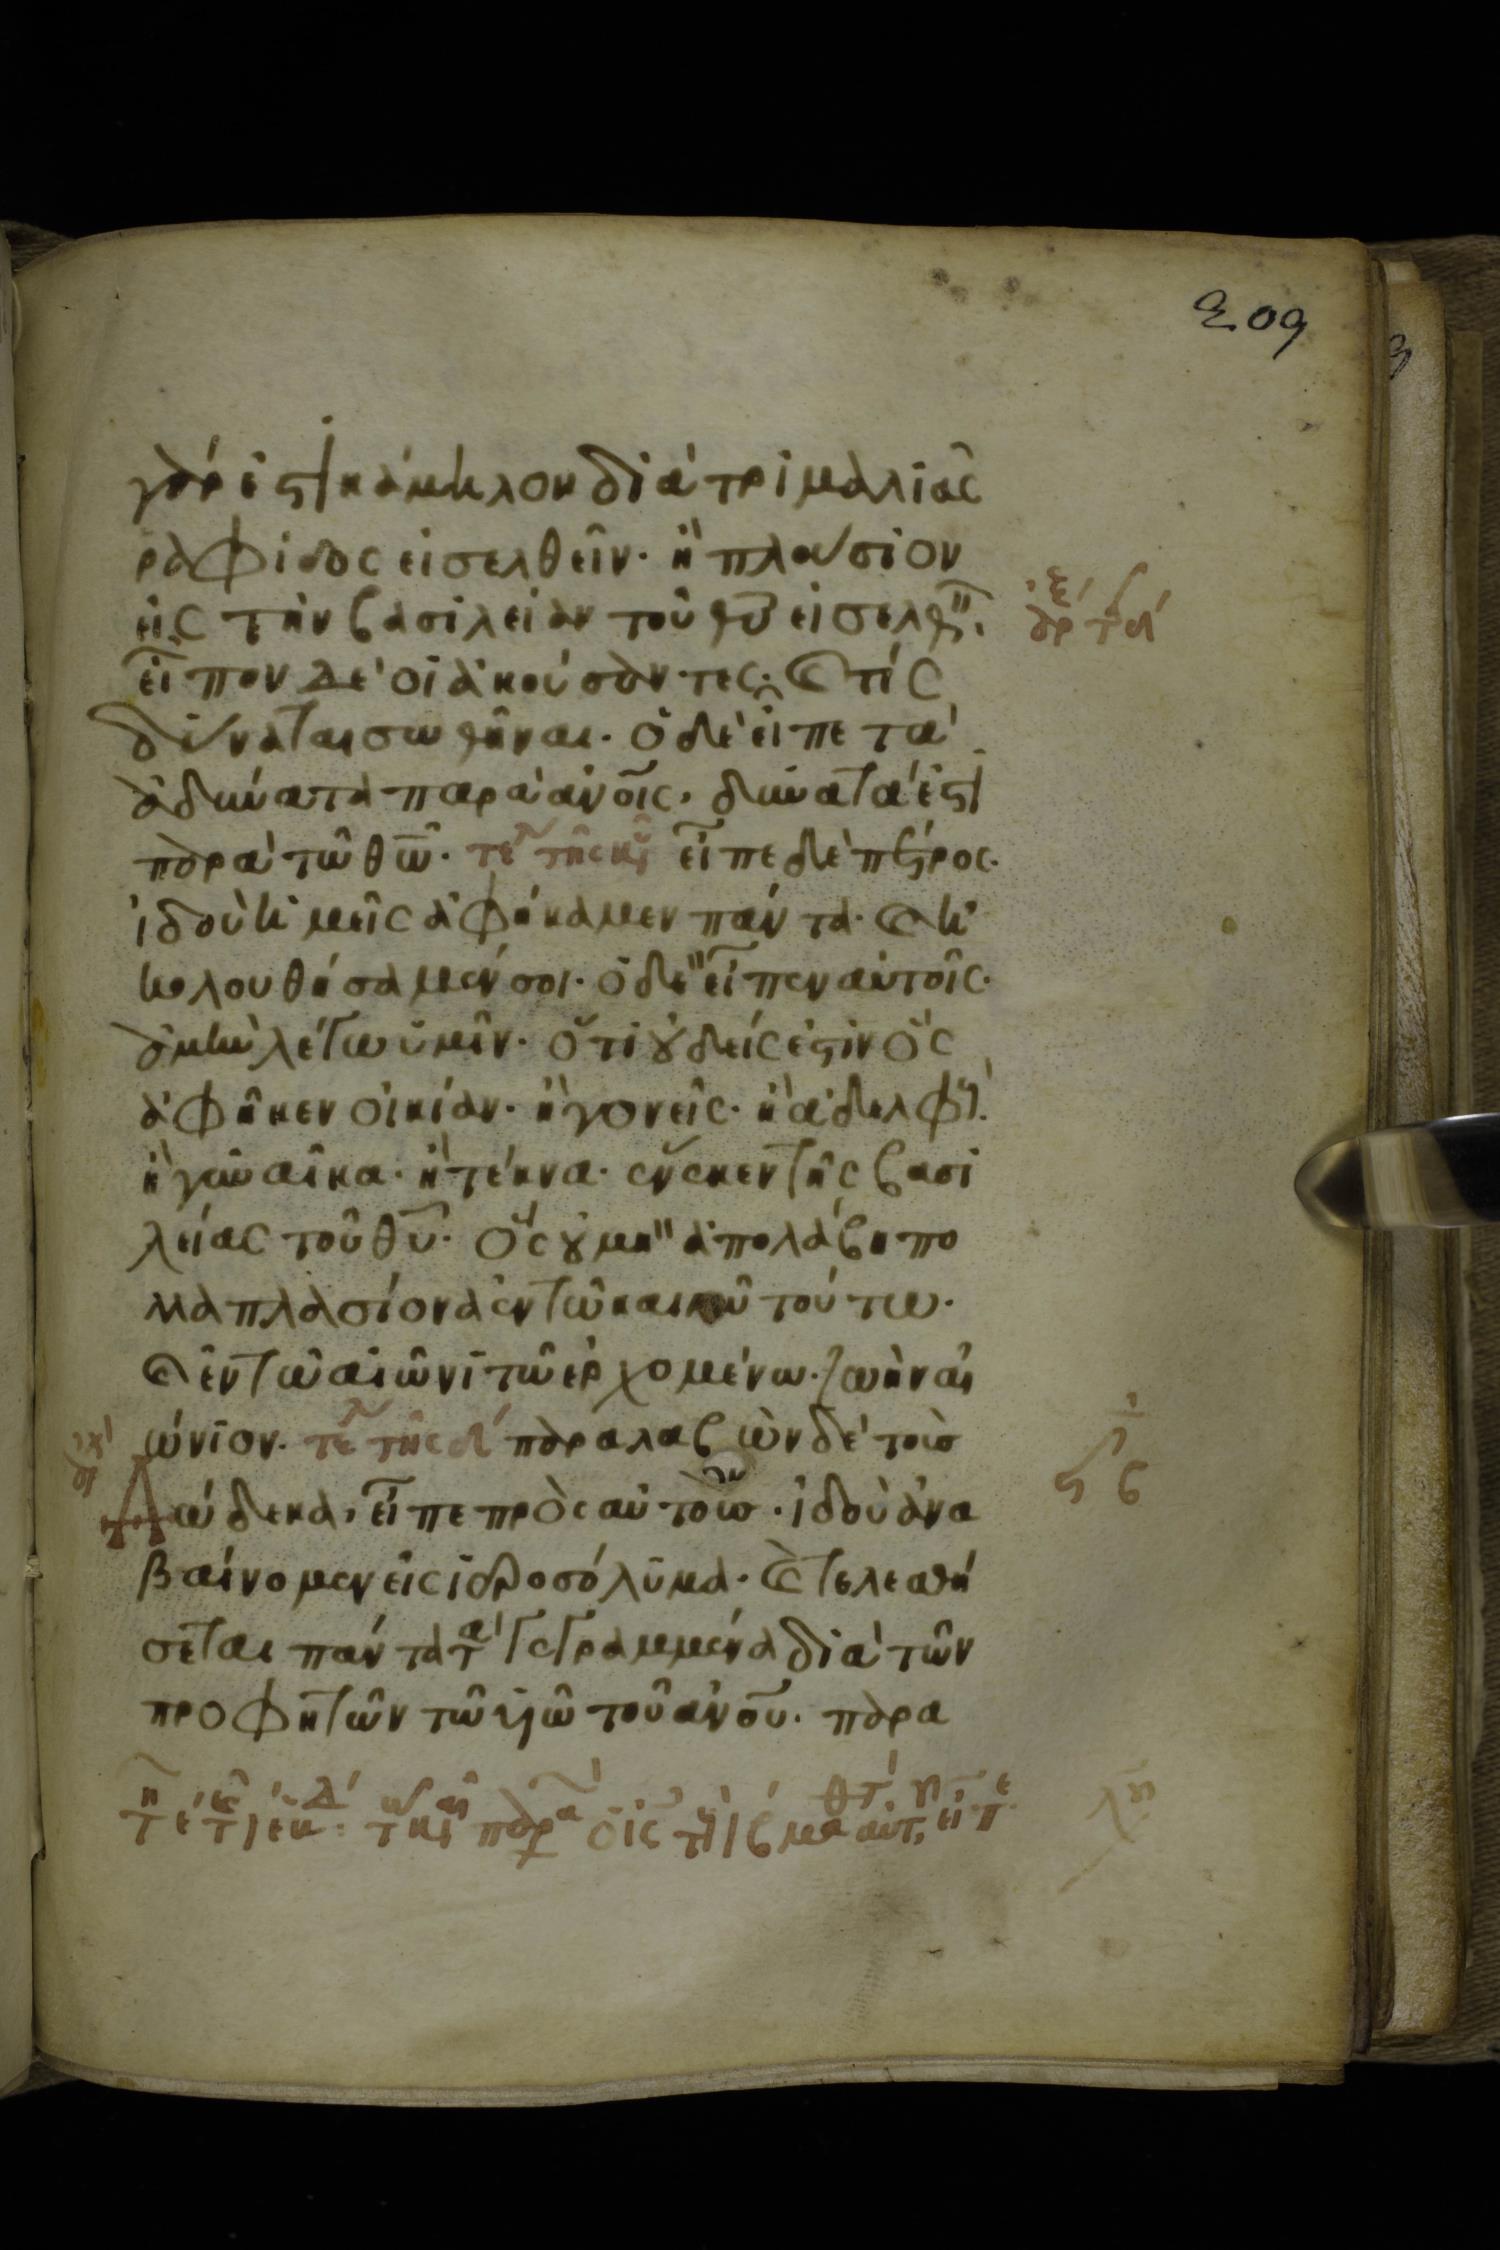 209
γάρ ἐστι κάμηλον διὰ τριμαλιᾶς
ραφίδος εἰσελθεῖν· ἢ πλούσιον
εἰς τὴν βασιλείαν τοῦ θυ εἰσελθεῖν.
εἶπον δὲ οἱ ἀκούσαντες· καὶ τίς
δύναται σωθῆναι· ὁ δὲ εἶπε τὰ
ἀδύνατα παρὰ ἀνοις, δυνατά ἐστι
παρὰ τῶ θω· τε τῆς κυ εἶπε δὲ πέτρος·
ἰδοὺ ἡμεῖς ἀφήκαμεν πάντα· καὶ ἠ
κολουθήσαμέν σοι· ὁ δὲ εἶπεν αὐτοῖς·
ἀμὴν λέγω ὑμῖν· ὅτι οὐδείς ἐστιν ὃς
ἀφῆκεν οἰκίαν· ἢ γονεῖς· ἢ ἀδελφούς·
ἢ γυναῖκα· ἢ τέκνα· ἕνεκεν τῆς βασι
λείας τοῦ θυ· ὃς οὐ μὴ ἀπολάβη πο
λλαπλασίονα ἐν τῶ καιρῶ τούτω·
καὶ ἐν τῶ αἰῶνι τῶ ἐρχομένω· ζωὴν αἰ
ώνιον· τε τῆς παραλαβὼν δὲ τοὺς
δώδεκα, εἶπε πρὸς αὐτούς· ἰδοὺ ἀνα
βαίνομεν εἰς ἱεροσόλυμα· καὶ τελεσθή
σεται πάντα τὰ γεγραμμένα διὰ τῶν
προφητῶν τῶ υἱῶ τοῦ ἀνου· παρα